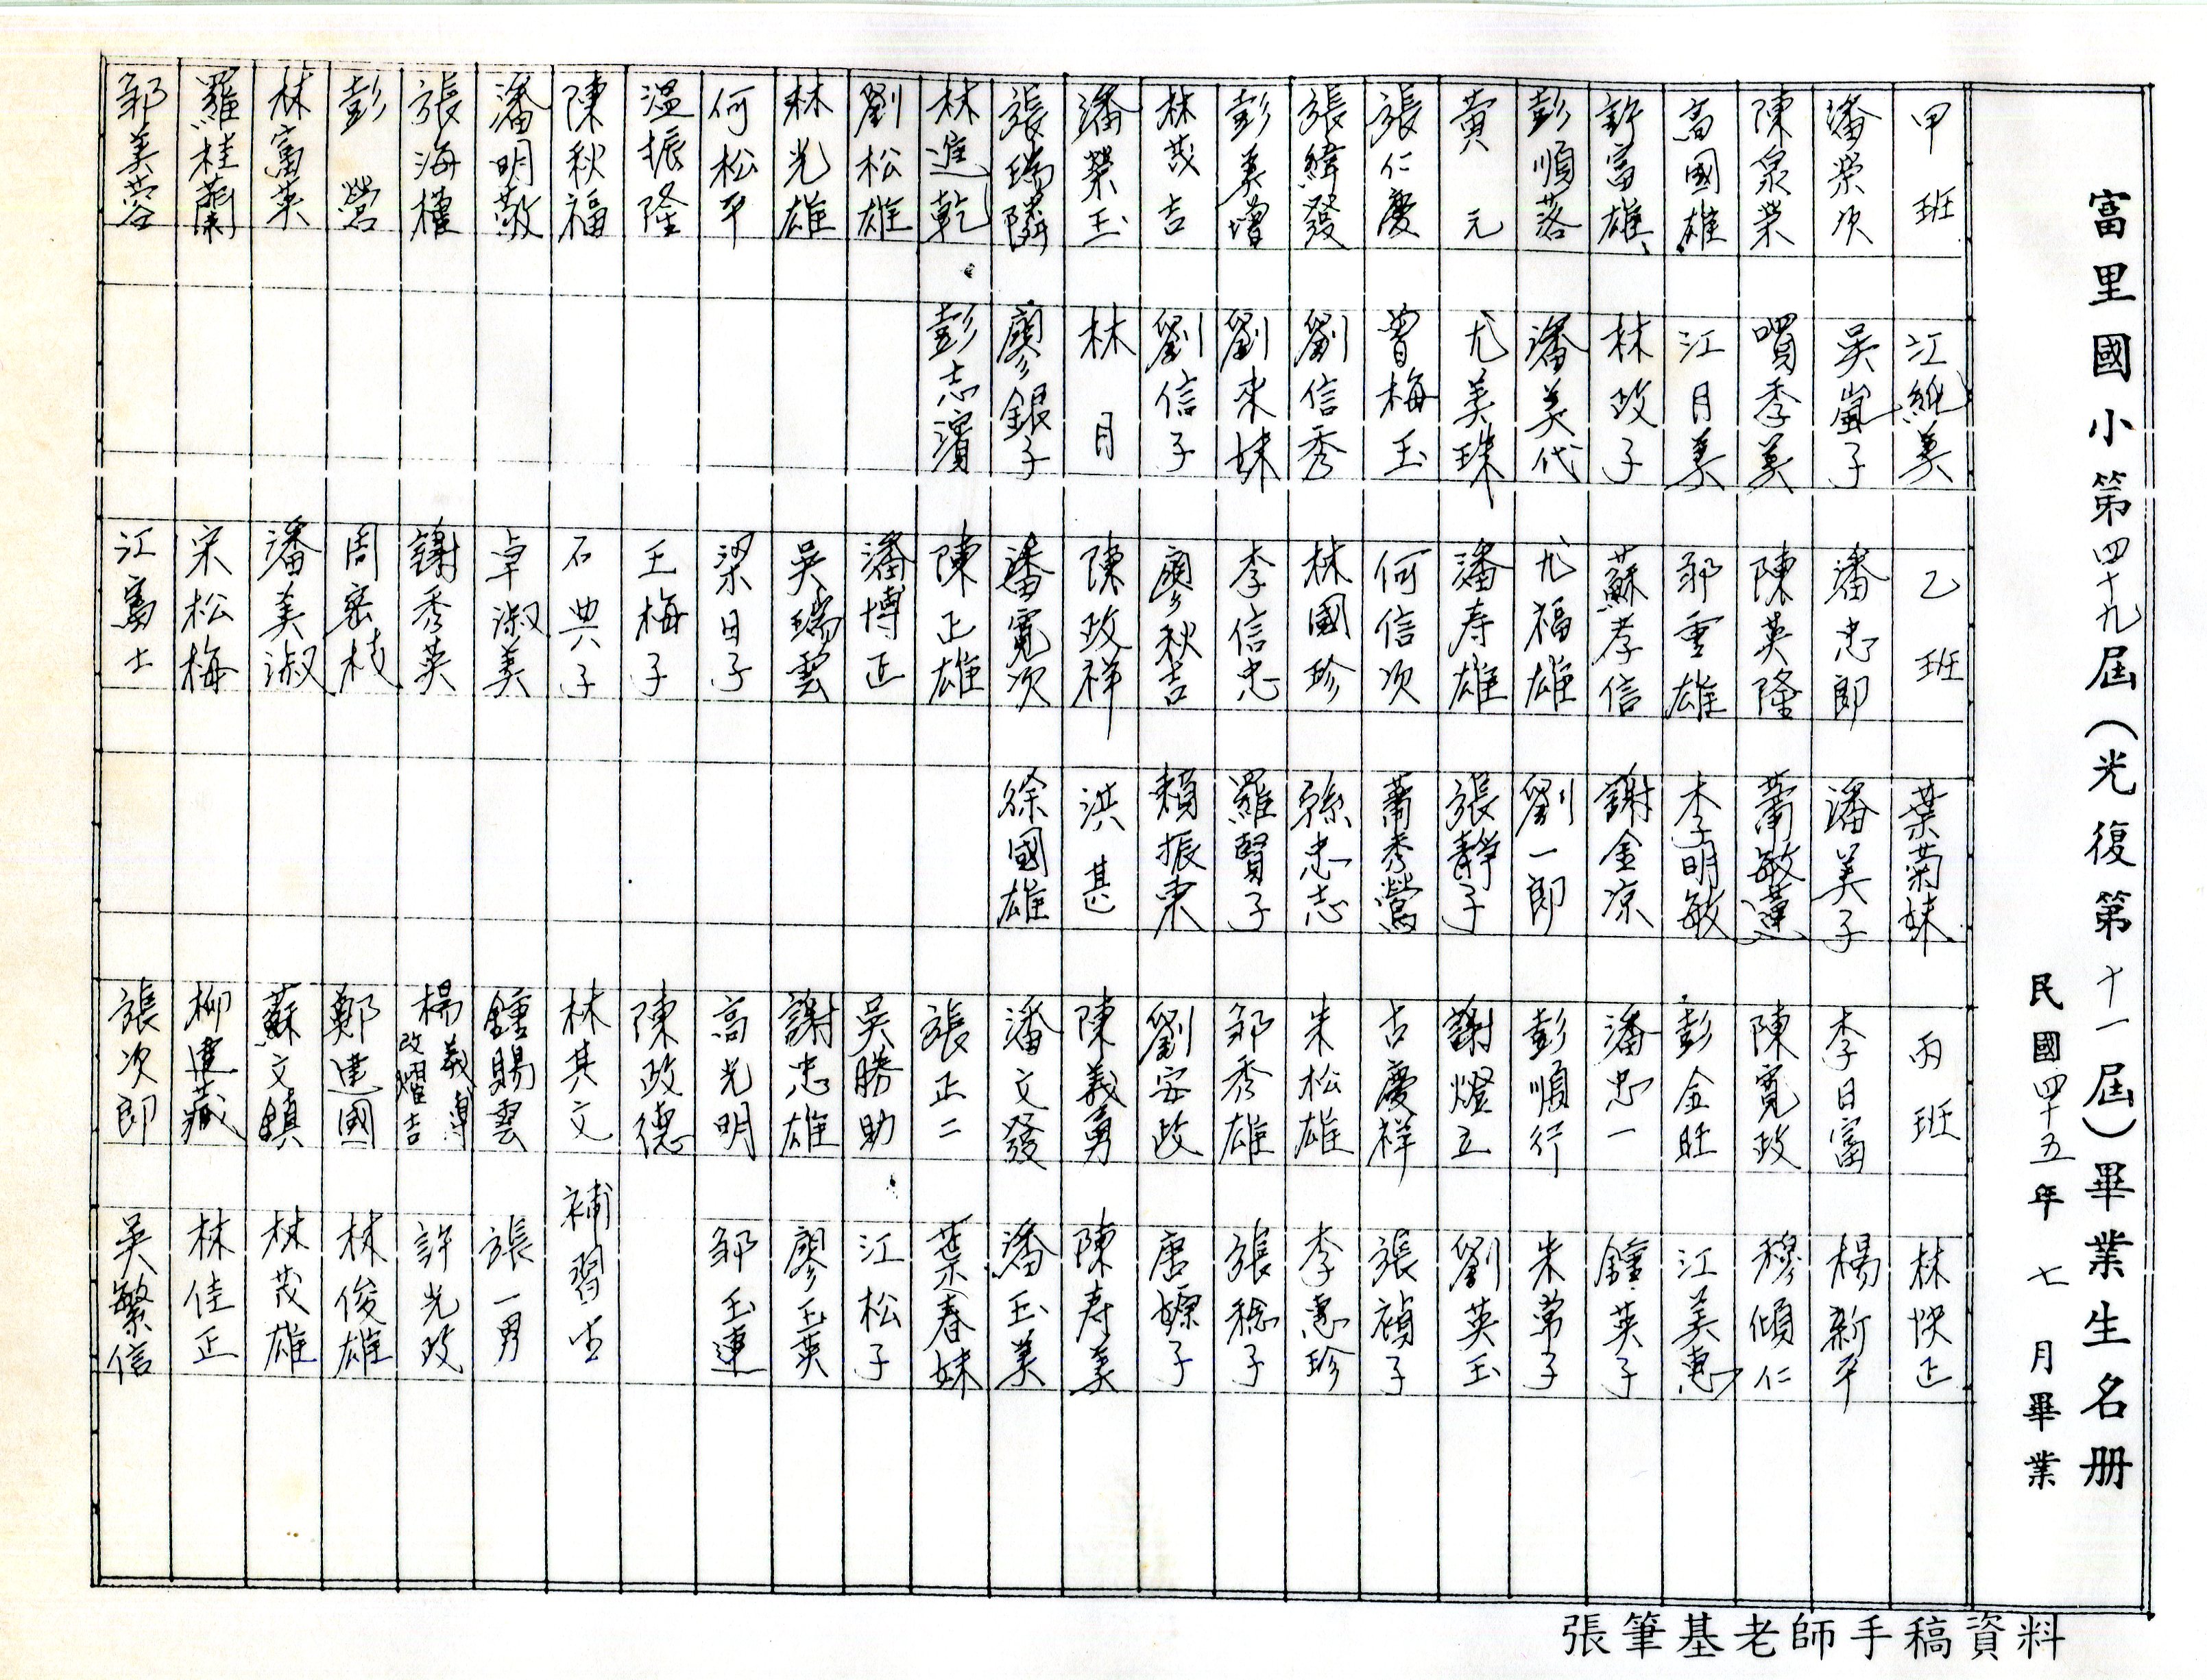 富里國小第四十九屆(光復第十一屆)畢業生名册
民國四十五年七月畢業
甲班
潘榮次
陳泉榮
高國雄
許富雄
彭順落
黃元
張仁慶
張緯發
彭美增
林茂吉
潘榮玉
張瑞隣
林進乾
劉松雄
林光雄
何松平
温振隆
陳秋福
潘明敬
張海權
彭鶯
林富英
羅桂蘭
鄒美蓉
江純美
吳嵐子
季美
江月美
林政子
潘美代
尤美珠
曾梅玉
劉信秀
劉來妹
劉信子
林月
廖銀子
彭志濱
乙班
潘忠郎
陳英隆
郭重雄
蘇孝信
尤福雄
潘寿雄
何信次
林國珍
李信忠
廖秋吉
陳政祥
潘寬次
陳正雄
潘博正
吳瑞雲
梁日子
王梅子
石典子
卓淑美
謝秀英
周密枝
潘美淑
宋松梅
江富士
葉菊妹
潘美子
蕭敏蓮
李明敏
謝金凉
劉一郎
張靜子
蕭秀鶯
孫忠志
羅賢子
賴振東
洪甚
徐國雄
丙班
李日富
陳寬政
彭金旺
潘忠一
彭順行
謝燈立
古慶祥
朱松雄
鄒秀雄
劉安政
陳義勇
潘文發
張正二
吳勝助
謝忠雄
高光明
陳政德
林其文
鍾賜雲
楊義溥
改耀吉
鄭建國
蘇文鎮
柳建藏
張次郎
林快正
楊新平
穆傾仁
江美惠
鍾英子
朱常子
劉英玉
張禎子
李惠珍
張稔子
唐嫖子
陳寿美
潘玉美
葉春妹
江松子
廖玉英
鄒玉連
補習生
張一男
許光政
林俊雄
林茂雄
林佳正
吳繁信
張筆基老師手稿資料